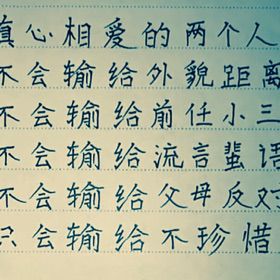 真心相爱的两个人
不会输给外貌距离
不会输给前任小三
不会输给流言蜚语
不会输给父母反对
只会输给不珍惜